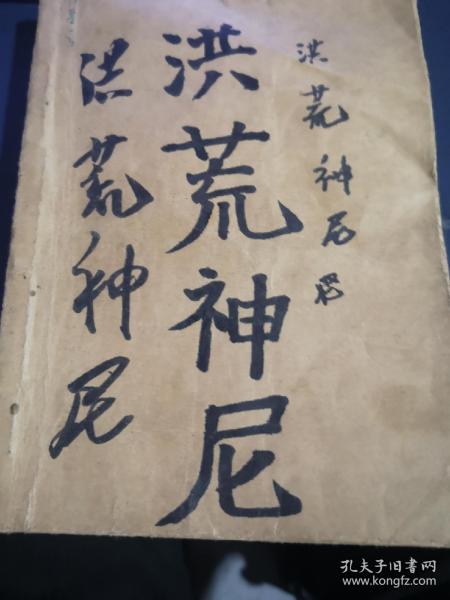 洪荒神尼
洪荒神尼
洪荒神尼
孔夫子旧书网
www.kongfz.com